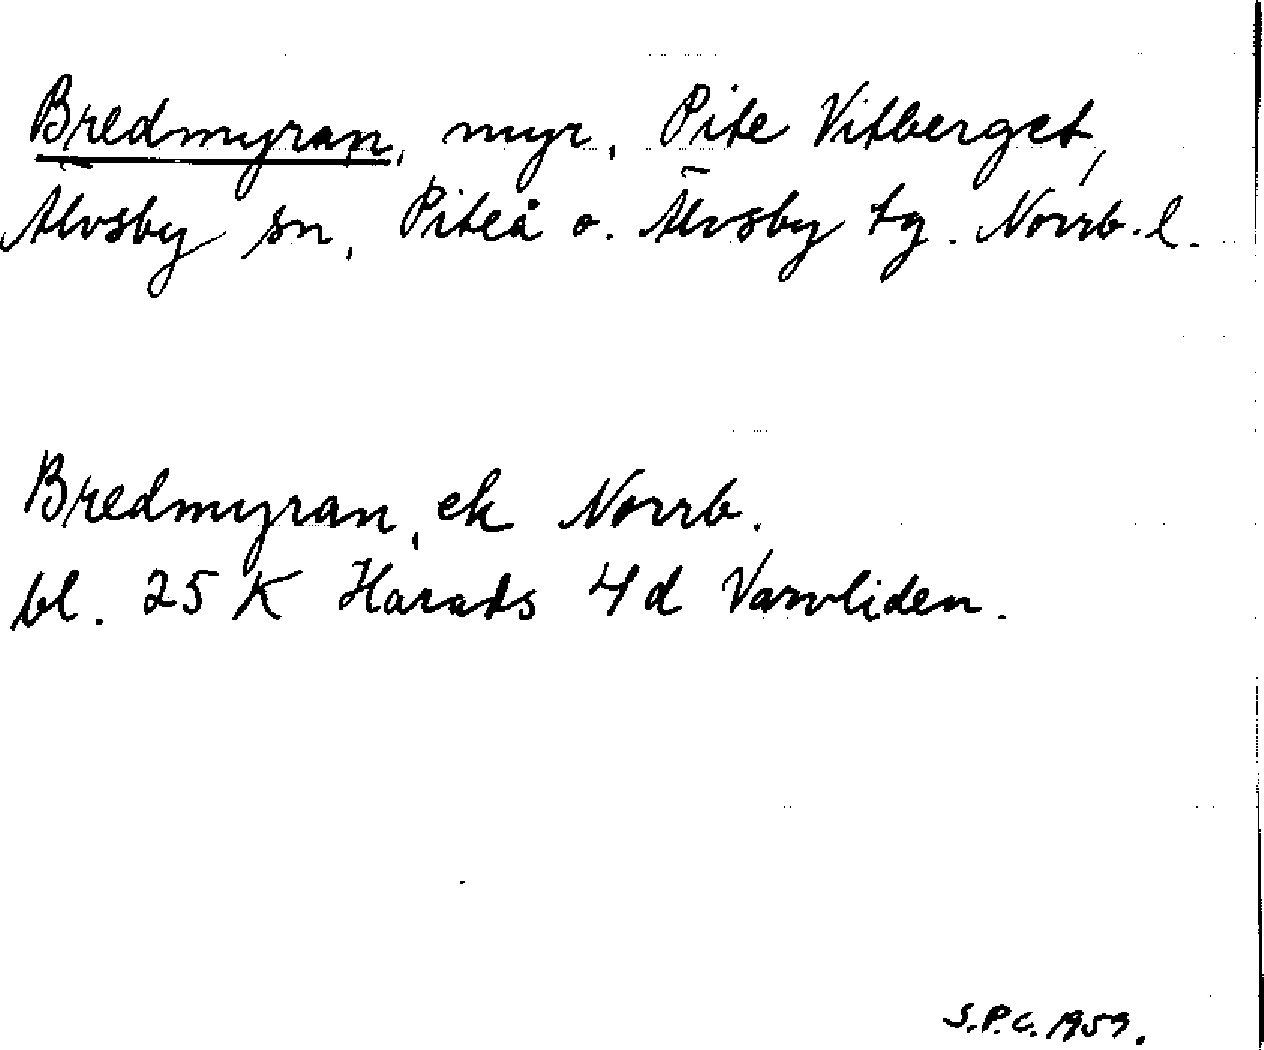 Bredmyran, myr, Pite Vitberget,
Älvsby sn, Piteå o. Älvsby tg. Norrb. l.
Bredmyran, ek Norrb.
bl. 25 K Harads 4d Varvliden.
S.P.C. 1959.